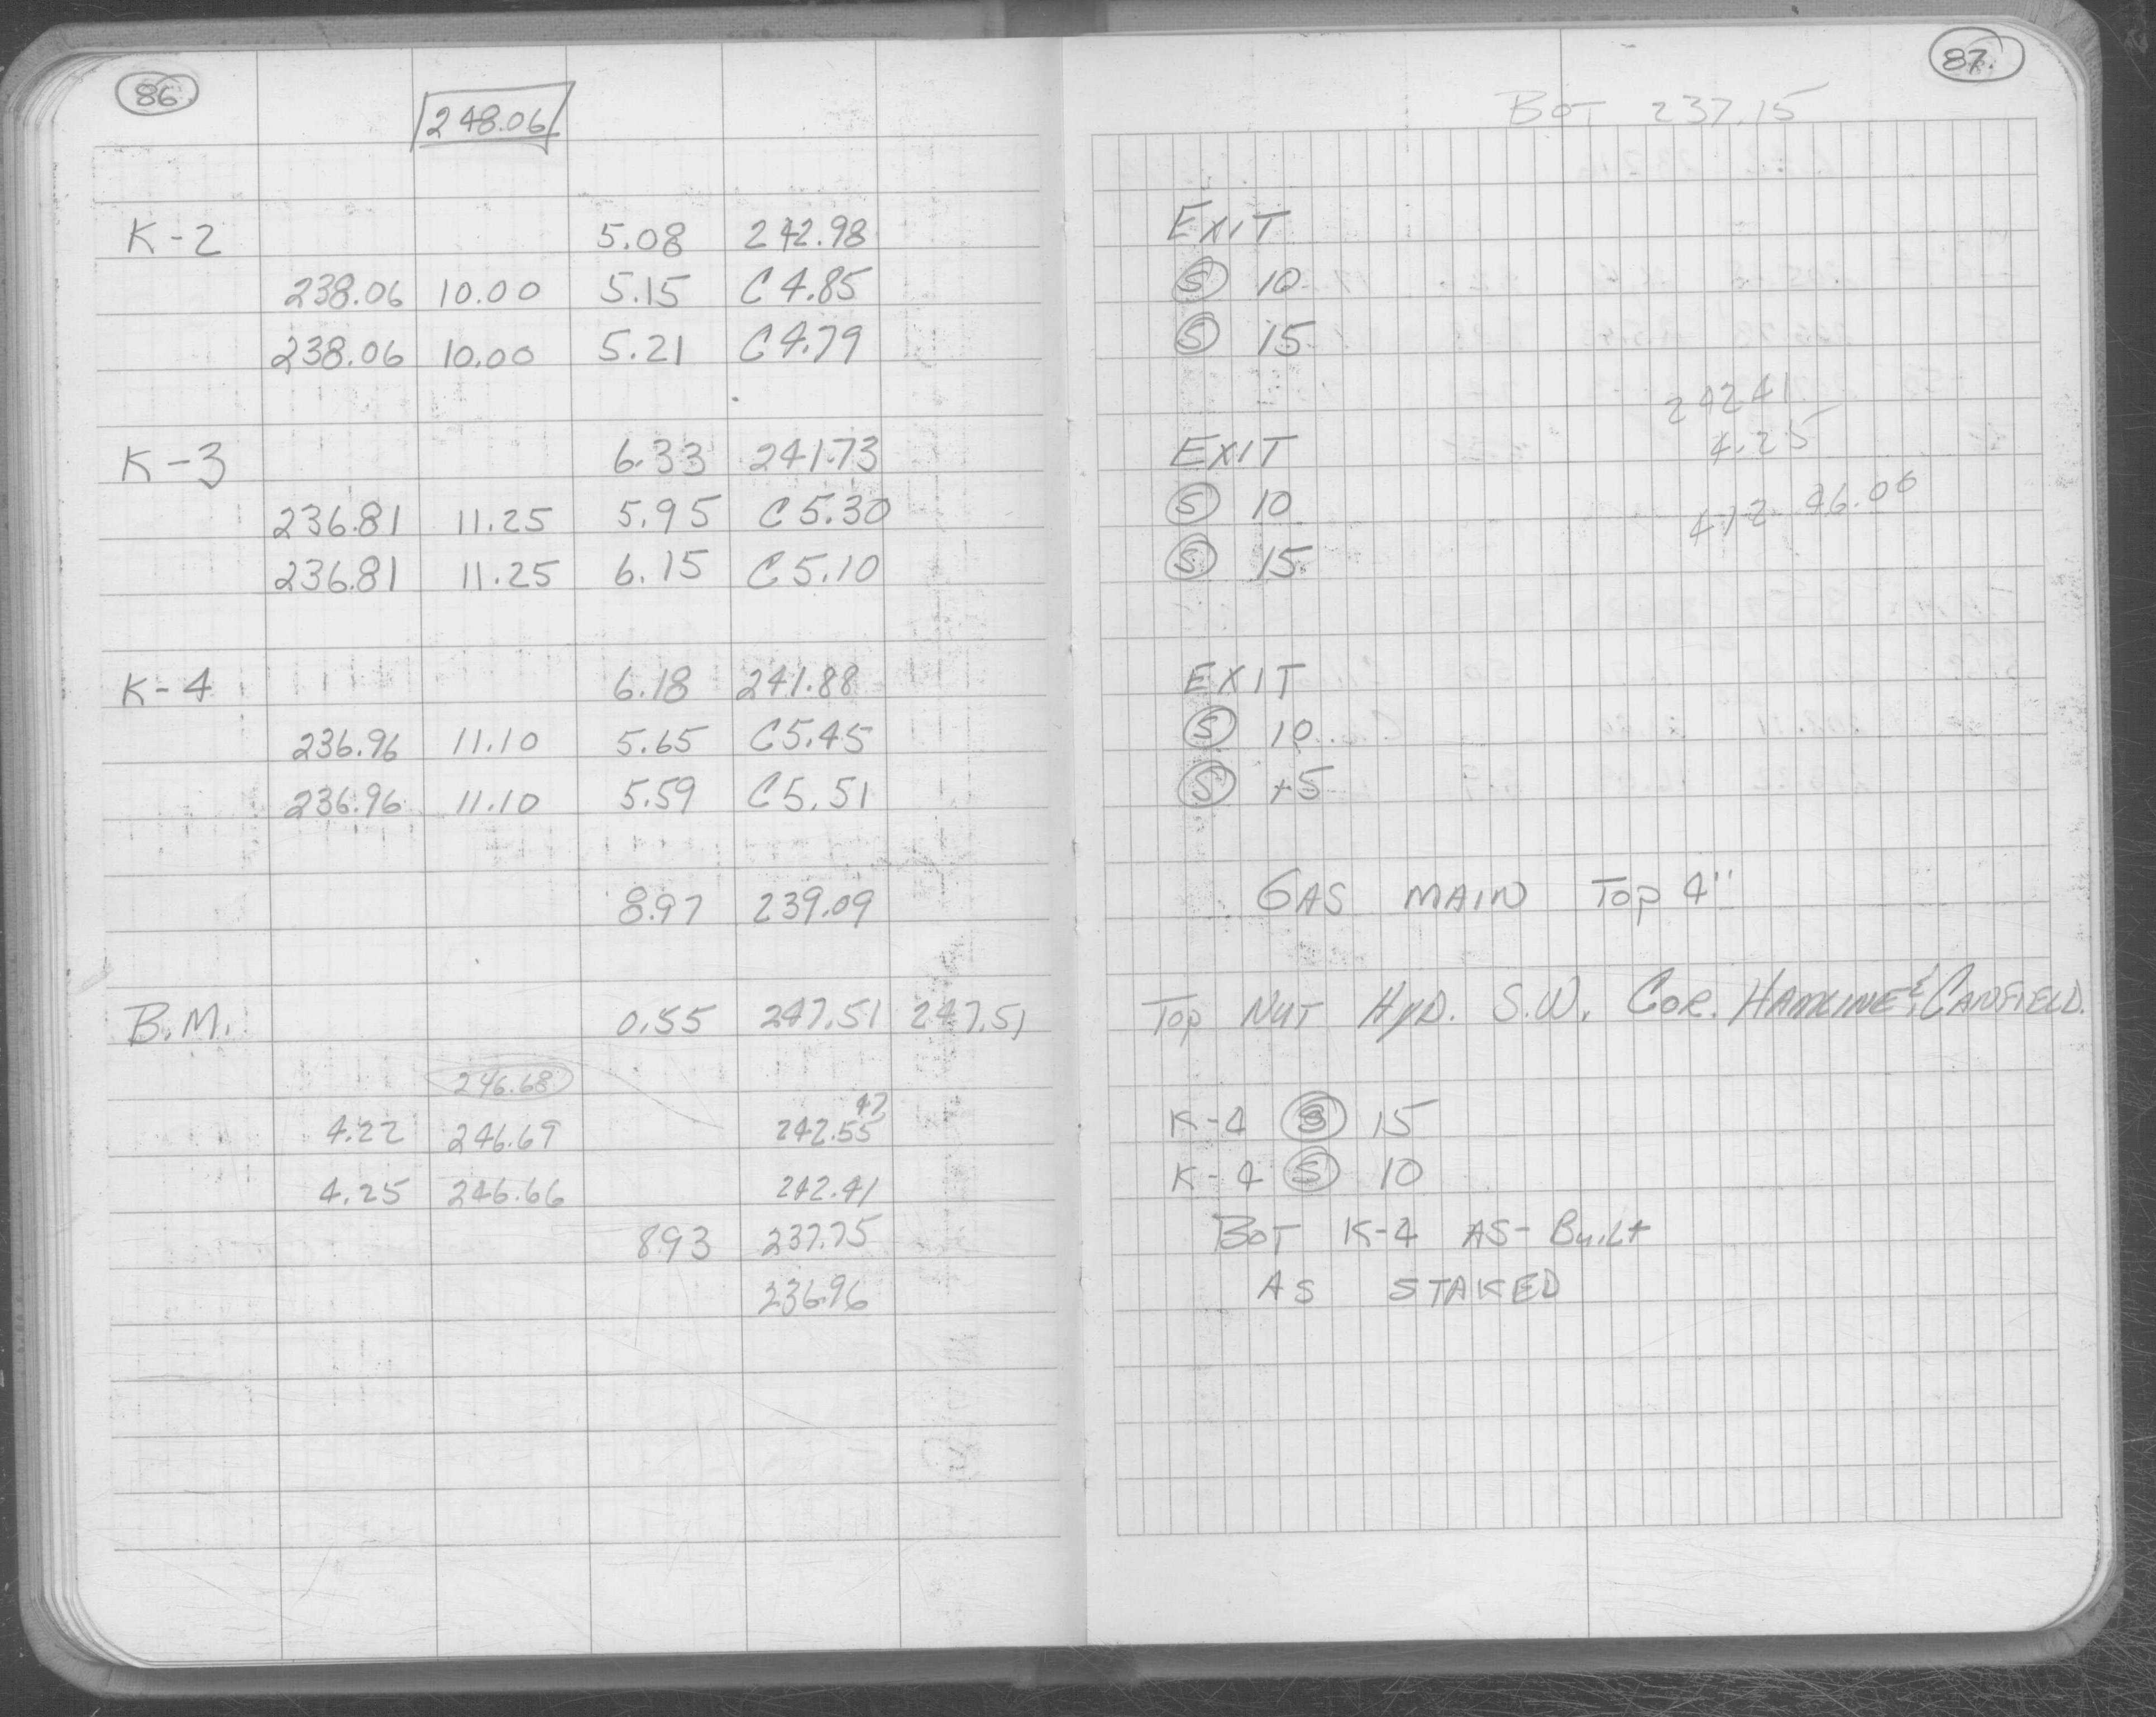 86
248.06
K-2 5.08 242.98
238.06 10.00 5.15 C 4.85
238.06 10.00 5.21 C 4.79
K-3 6.33 241.73
236.81 11.25 5.95 C 5.30
236.81 11.25 6.15 C 5.10
K-4 6.18 241.88
236.96 11.10 5.65 C 5.45
236.96 11.10 5.59 C 5.51
8.97 239.09
B.M. 0.55 247.51 247.51
246.68
47
4.22 246.69 242.55
4.25 246.66 242.41
8.93 237.75
236.96
87
BOT 237.15
EXIT
S 10
S 15
242 41
4.25
EXIT
46.06
S 10
S 15
EXIT
S 10
S +5
GAS MAIN TOP 4"
TOP NUT HYD. S.W. COR. & CANFIELD.
K-4 S 15
K-4 S 10
BOT K-4 AS-Built
AS STAKED